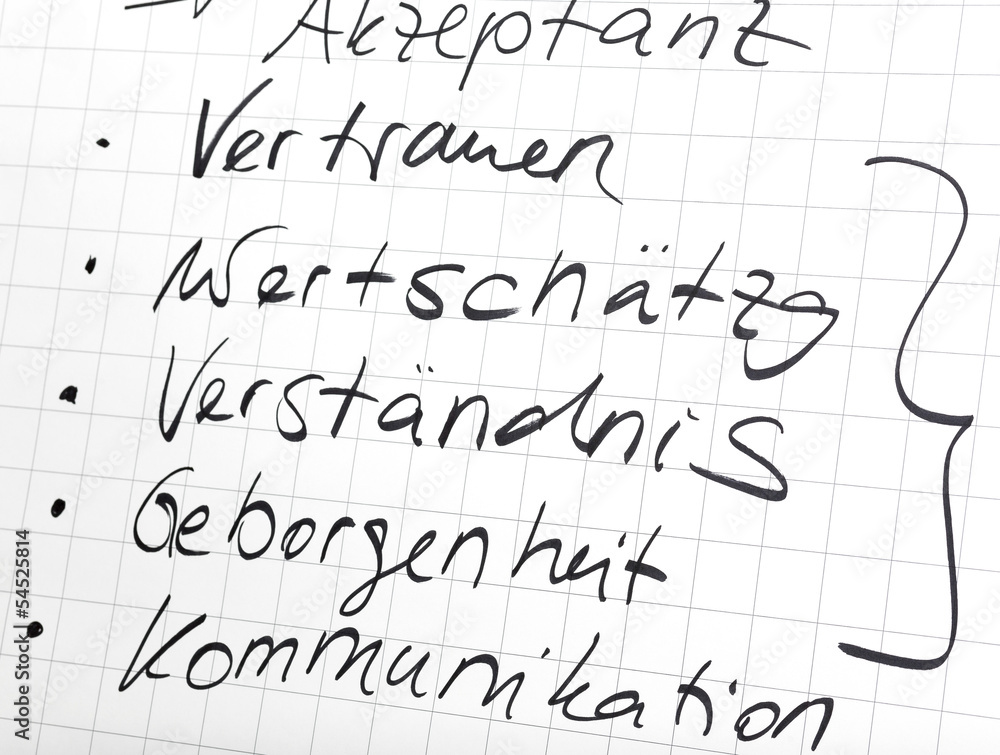 → Akzeptanz
• Vertrauen
• Wertschätzg
• Verständnis
• Geborgenheit
• Kommunikation
Adobe Stock | #54525814